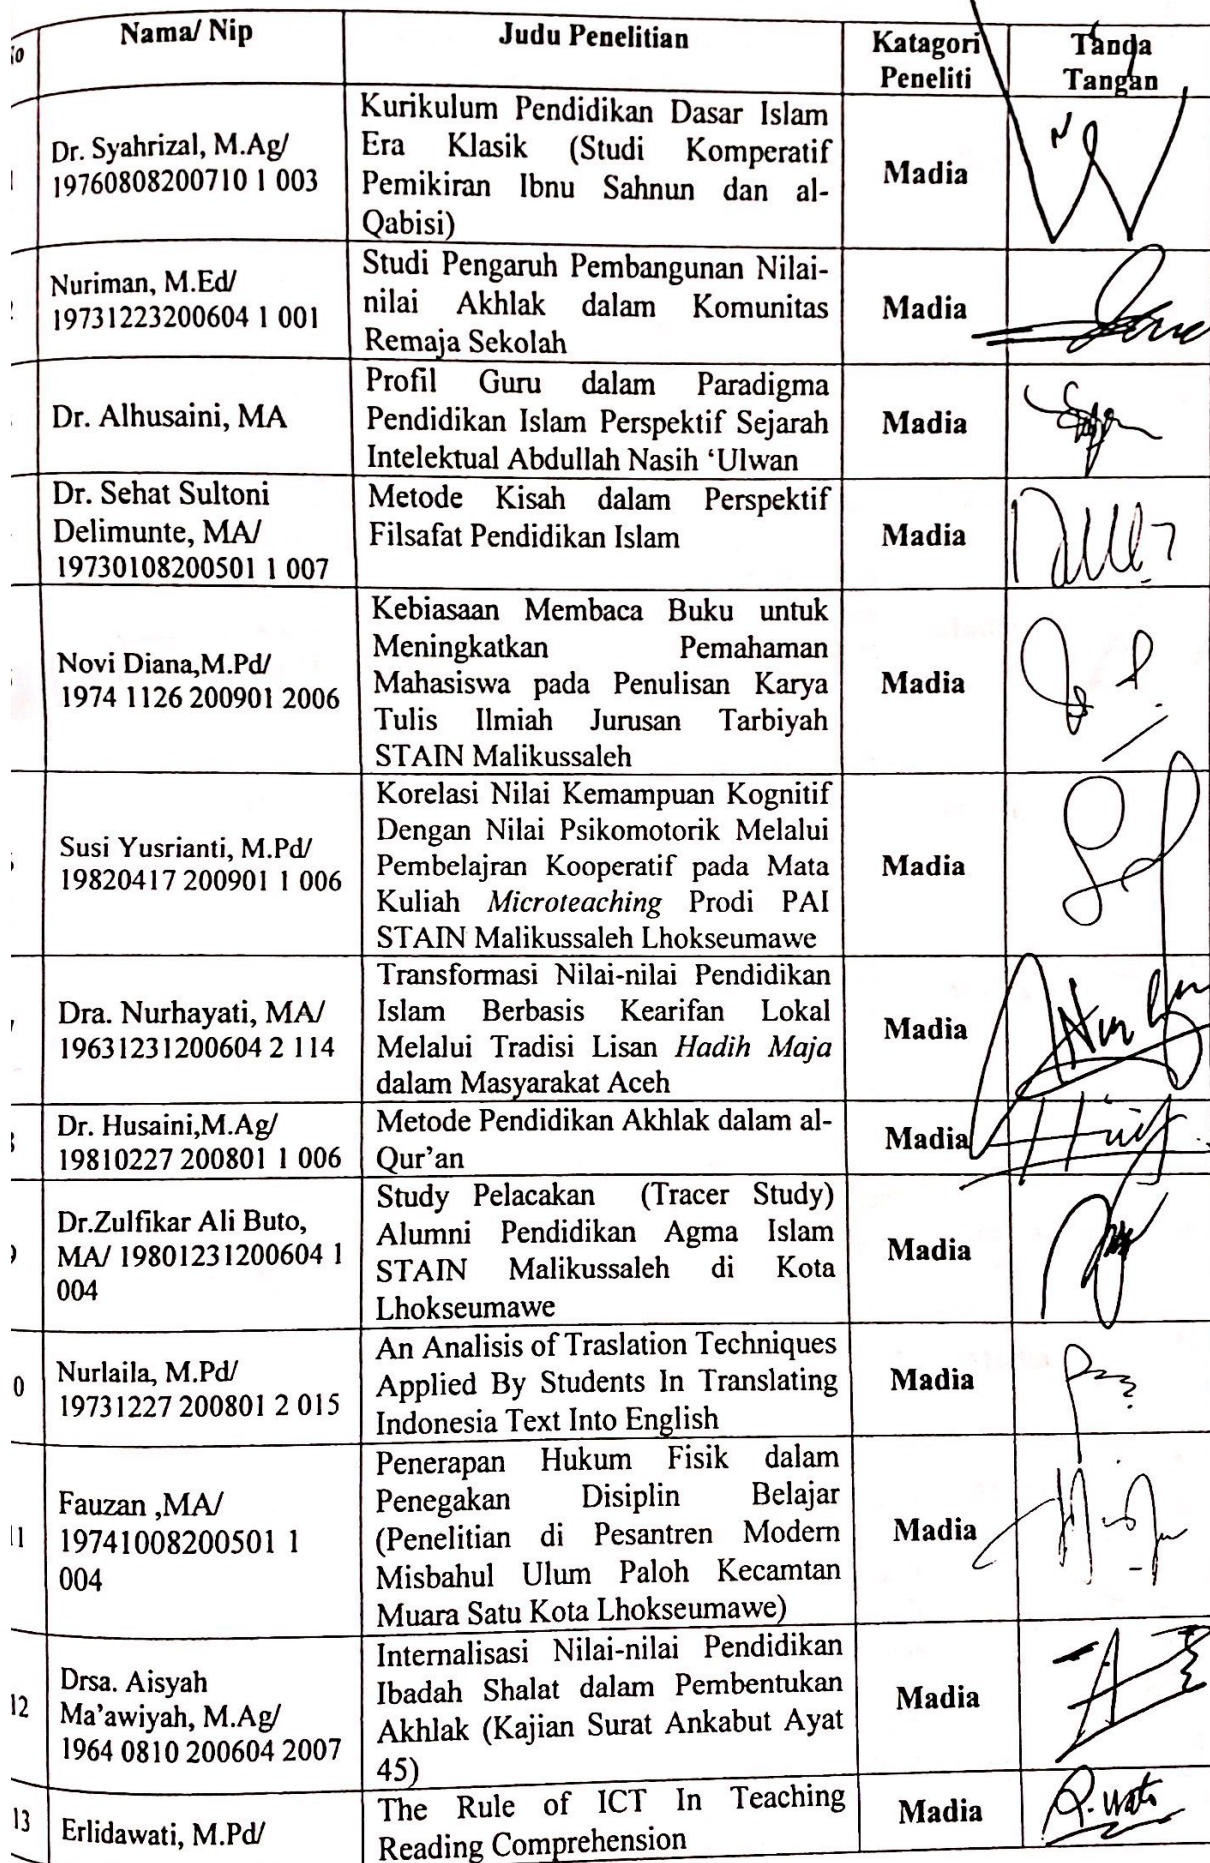 No
Nama/ Nip
Judu Penelitian
Katagori
Peneliti
Tanda
Tangan
Dr. Syahrizal, M.Ag/
19760808200710 1 003
Kurikulum Pendidikan Dasar Islam
Era Klasik (Studi Komperatif
Pemikiran Ibnu Sahnun dan al-
Qabisi)
Madia
Nuriman, M.Ed/
19731223200604 1 001
Studi Pengaruh Pembangunan Nilai-
nilai Akhlak dalam Komunitas
Remaja Sekolah
Madia
Dr. Alhusaini, MA
Profil Guru dalam Paradigma
Pendidikan Islam Perspektif Sejarah
Intelektual Abdullah Nasih ‘Ulwan
Madia
Dr. Sehat Sultoni
Delimunte, MA/
19730108200501 1 007
Metode Kisah dalam Perspektif
Filsafat Pendidikan Islam
Madia
Novi Diana,M.Pd/
1974 1126 200901 2006
Kebiasaan Membaca Buku untuk
Meningkatkan Pemahaman
Mahasiswa pada Penulisan Karya
Tulis Ilmiah Jurusan Tarbiyah
STAIN Malikussaleh
Madia
Susi Yusrianti, M.Pd/
19820417 200901 1 006
Korelasi Nilai Kemampuan Kognitif
Dengan Nilai Psikomotorik Melalui
Pembelajran Kooperatif pada Mata
Kuliah Microteaching Prodi PAI
STAIN Malikussaleh Lhokseumawe
Madia
Dra. Nurhayati, MA/
19631231200604 2 114
Transformasi Nilai-nilai Pendidikan
Islam Berbasis Kearifan Lokal
Melalui Tradisi Lisan Hadih Maja
dalam Masyarakat Aceh
Madia
Dr. Husaini,M.Ag/
19810227 200801 1 006
Metode Pendidikan Akhlak dalam al-
Qur’an
Madia
Dr.Zulfikar Ali Buto,
MA/ 19801231200604 1
004
Study Pelacakan (Tracer Study)
Alumni Pendidikan Agma Islam
STAIN Malikussaleh di Kota
Lhokseumawe
Madia
0
Nurlaila, M.Pd/
19731227 200801 2 015
An Analisis of Traslation Techniques
Applied By Students In Translating
Indonesia Text Into English
Madia
11
Fauzan ,MA/
19741008200501 1
004
Penerapan Hukum Fisik dalam
Penegakan Disiplin Belajar
(Penelitian di Pesantren Modern
Misbahul Ulum Paloh Kecamtan
Muara Satu Kota Lhokseumawe)
Madia
12
Drsa. Aisyah
Ma’awiyah, M.Ag/
1964 0810 200604 2007
Internalisasi Nilai-nilai Pendidikan
Ibadah Shalat dalam Pembentukan
Akhlak (Kajian Surat Ankabut Ayat
45)
Madia
13
Erlidawati, M.Pd/
The Rule of ICT In Teaching
Reading Comprehension
Madia